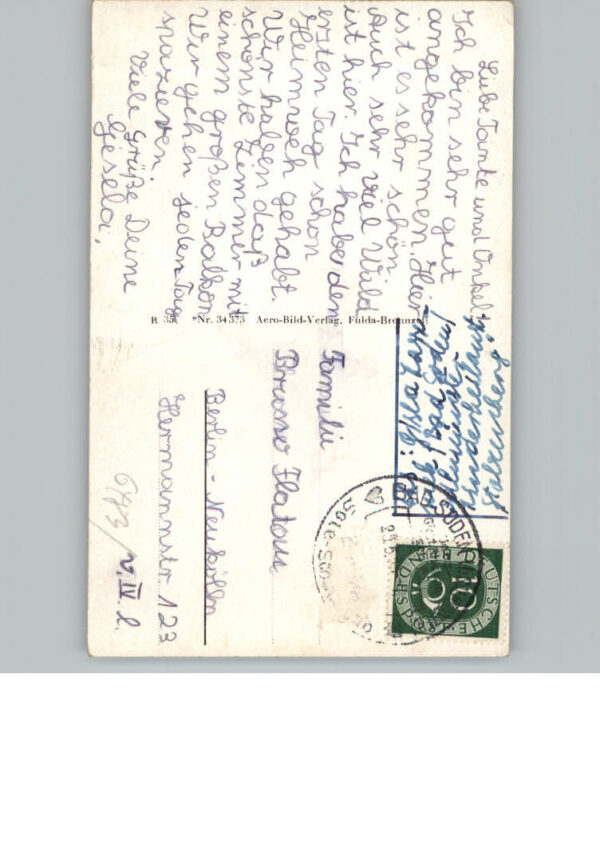 Liebe Tante und Onkel!
Ich bin sehr gut
angekommen. Hier
ist es sehr schön.
Auch sehr viel Wild
ist hier. Ich habe den
erzten Tag schon
Heimweh gehabt.
Wir haben daß
schönste Zimmer mit
einem großen Balkon
Wir gehen jeden Tag
spazieren.
Viele Grüße Deine
Gisela.
R 35 Nr. 34373 Aero-Bild-Verlag, Fulda-Bronnzell
Bad Soden
Kinderheilanst.
BAD SODEN
Sole-
DEUTSCHE
BUNDESPOST
10
Familie
Bruno Flatau
Berlin-Neukölln
Hermannstr 123
v. IV. l.